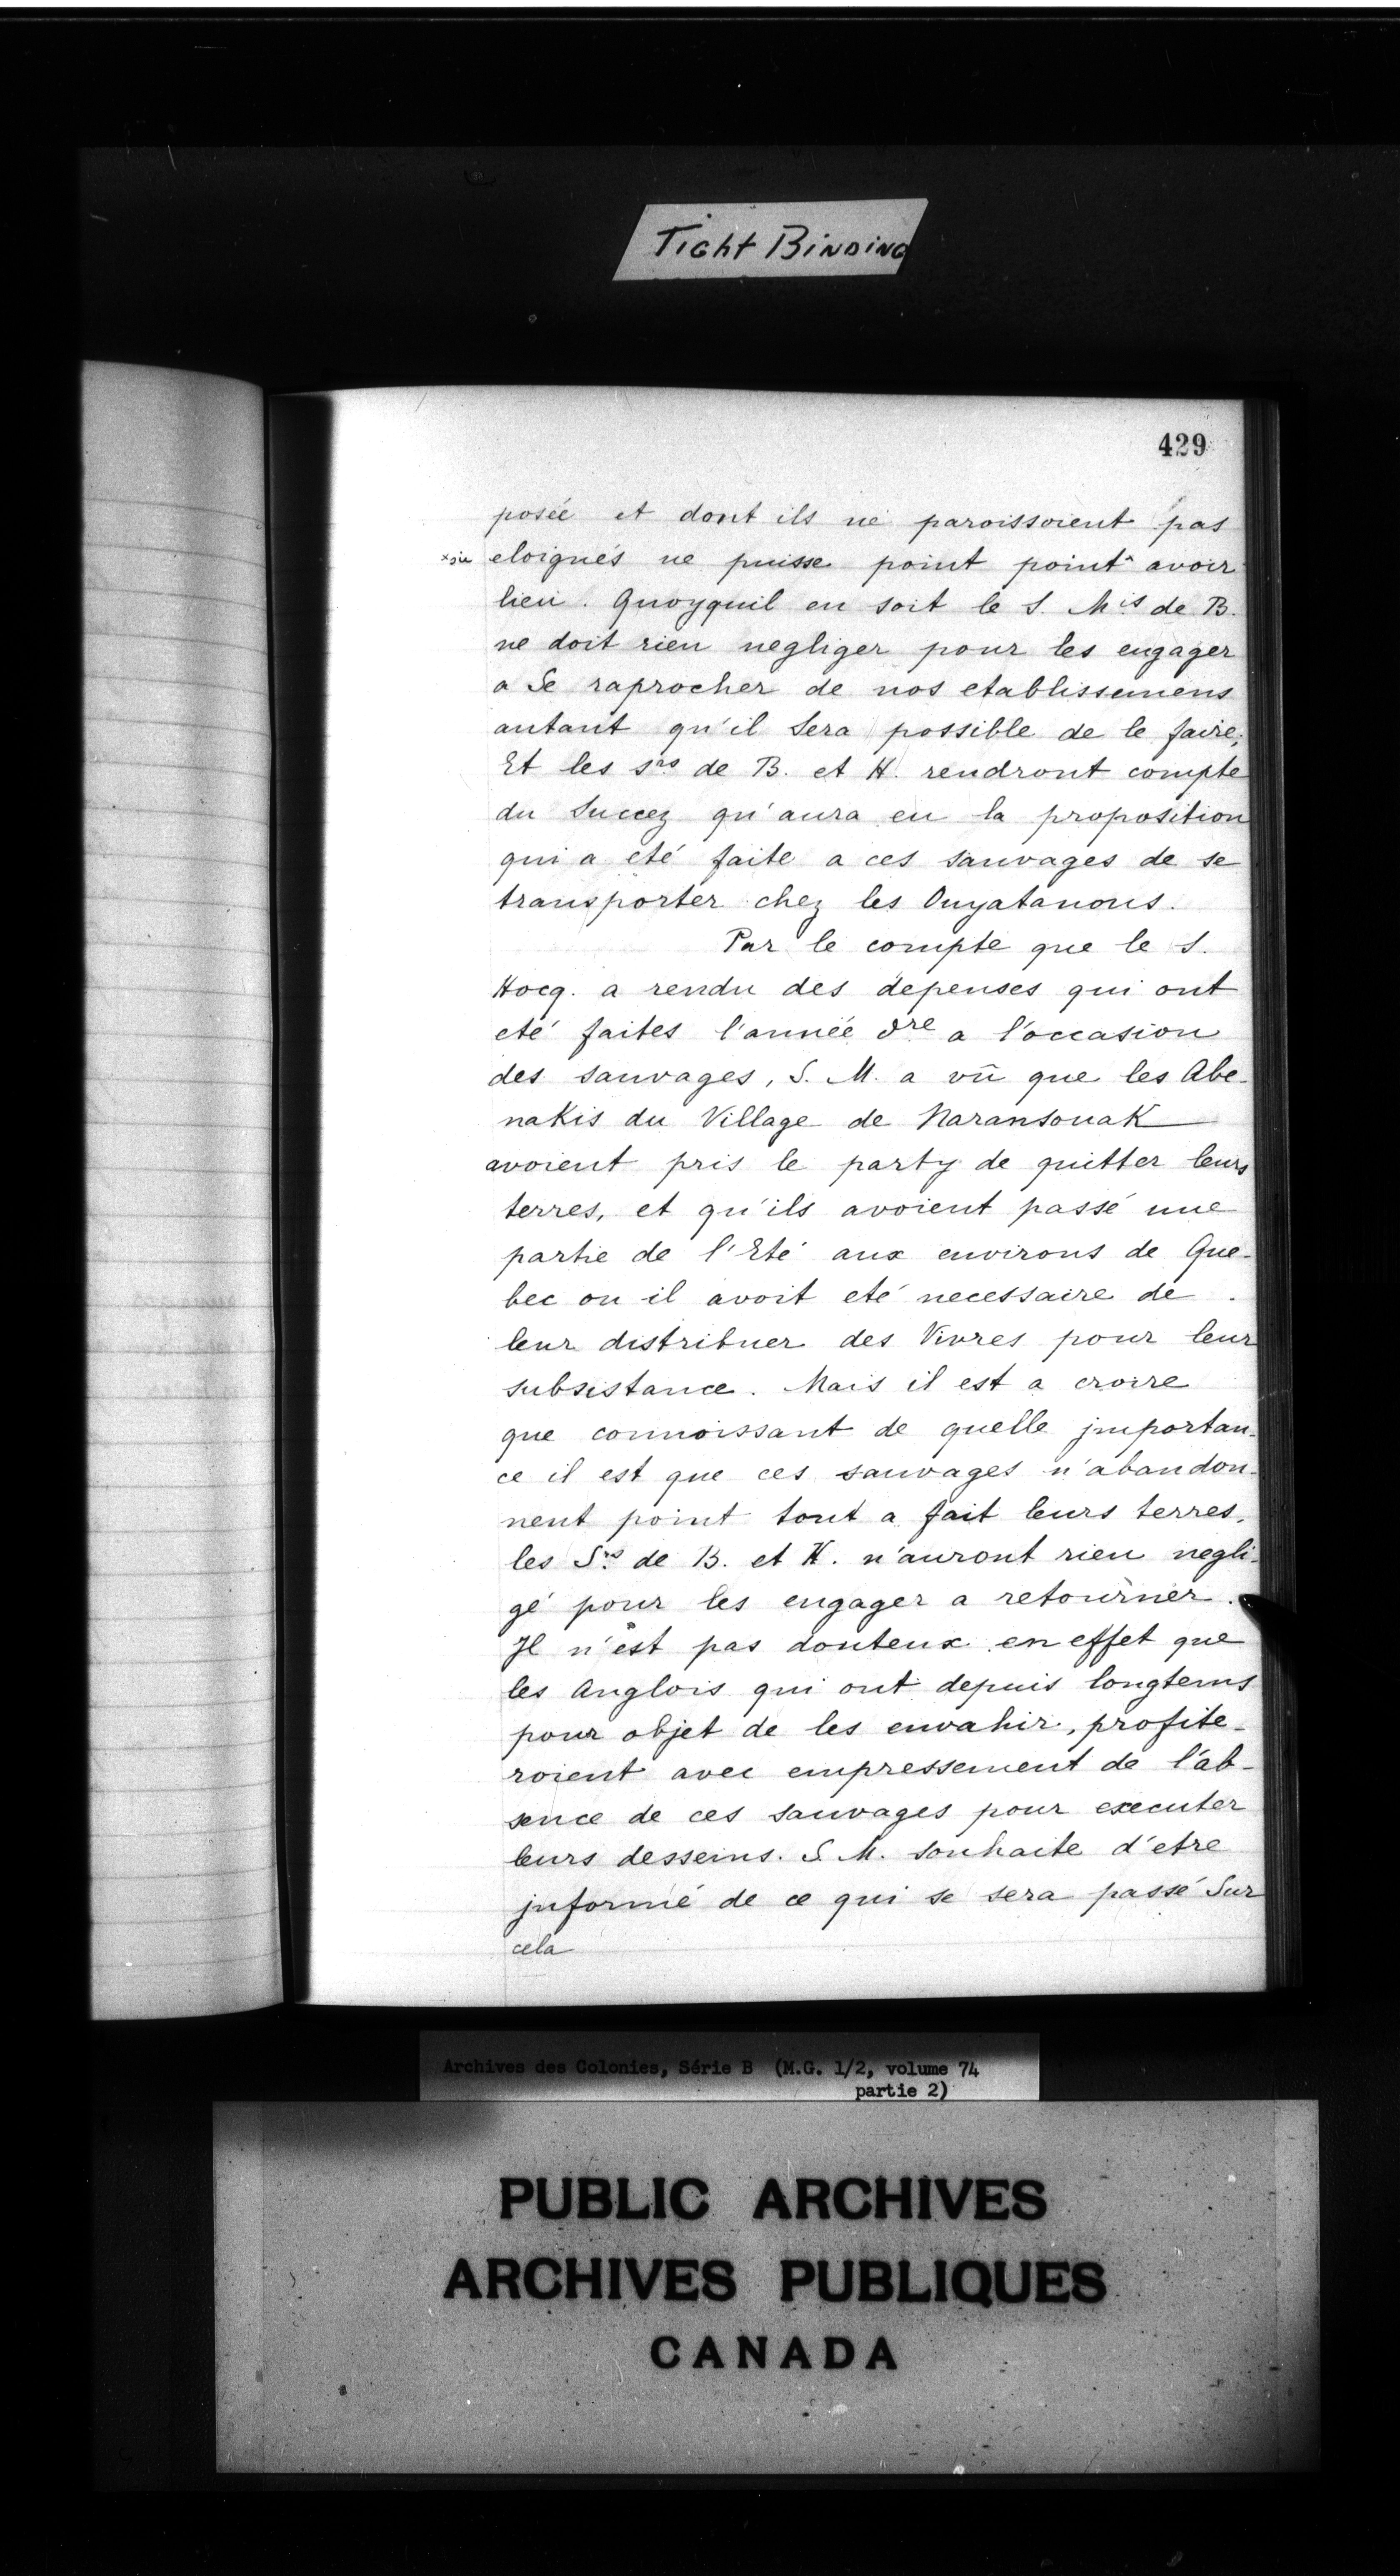 Tight Binding
429
posée et dont ils ne paroissoient pas
×sic eloignés ne puisse point point× avoir
lieu. Quoyquil en soit le S. Mis de B.
ne doit rien negliger pour les engager
a Se raprocher de nos etablissemens
autant qu'il Sera possible de le faire;
Et les srs de B. et H. rendront compte
du Succez qu'aura eu la proposition
qui a eté faite a ces sauvages de se
transporter chez les Ouyatanons.
Par le compte que le S.
Hocq. a rendu des depenses qui ont
eté faites l'année dre a l'occasion
des sauvages, S. M. a vû que les Abe-
naKis du Village de NaransouaK
avoient pris le party de quitter leurs
terres, et qu'ils avoient passé une
partie de l'Eté aux environs de Que-
bec ou il avoit eté necessaire de
leur distribuer des Vivres pour leur
subsistance. Mais il est a croire
que connoissant de quelle jmportan-
ce il est que ces sauvages n'abandon-
nent point tout a fait leurs terres,
les Srs de B. et H. n'auront rien negli-
gé pour les engager a retourner.
Jl n'est pas douteux en effet que
les Anglois qui ont depuis longtems
pour objet de les envahir, profite-
roient avec empressement de l'ab-
sence de ces sauvages pour executer
leurs desseins. S. M. souhaite d'etre
jnformé de ce qui se sera passé Sur
cela
Archives des Colonies, Série B (M.G. 1/2, volume 74
partie 2)
PUBLIC ARCHIVES
ARCHIVES PUBLIQUES
CANADA